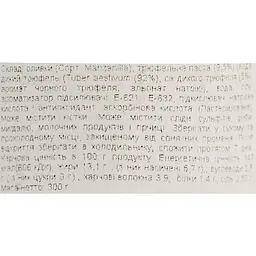 Склад: оливки (Сорт Манзаніла), трюфельна паста (9,5%) (вода,
дикий трюфель (Tuber aestivum) (92%), сік дикого трюфеля (5%
аромат чорного трюфеля, альгінат натрію), вода, сіль,
ароматизатор підсилювачі: Е-621, Е-632, підкислювач
кислота антиоксидант: аскорбінова кислота (Пастеризовані).
Може містити кістки. Може містити сліди сульфітів, риби,
мигдалю, молочних продуктів і гірчиці. Зберігати у сухому та
прохолодному місці, захищеному від сонячних променів. Після
відкриття зберігати в холодильнику, спожити протягом 7 днів.
Харчова цінність в 100 г продукту: Енергетична цінність 147
ккал(606 кДж), жири 13,1 г, (з них насичені 6,7 г), вуглеводи
г (з них цукри 0 г), харчові волокна 3,9, білки 1,4 г, сіль
Маса нетто: 300 г